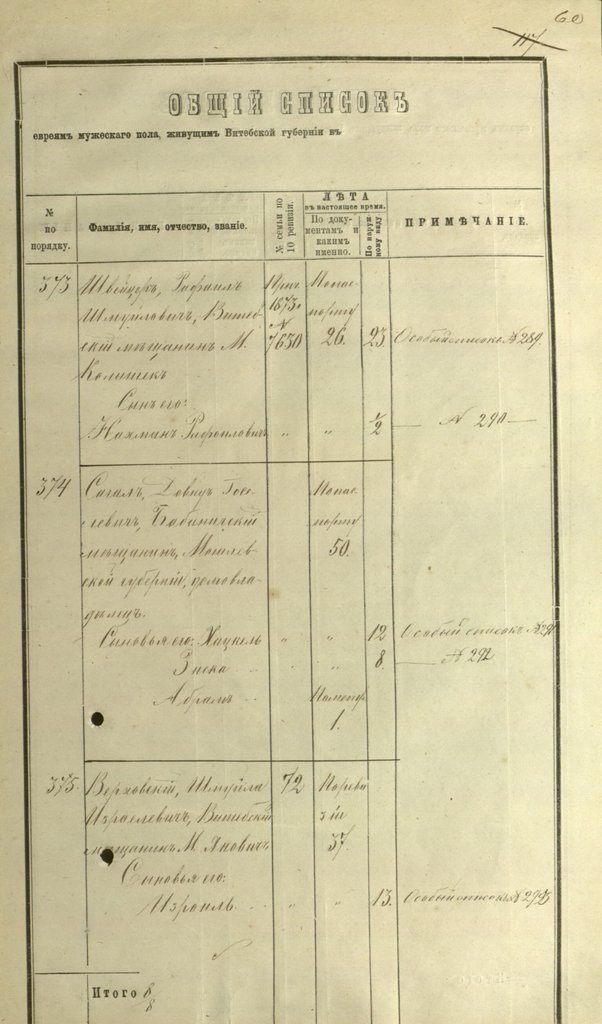 60
117
ОБЩІЙ СПИСОКЪ
евреямъ мужескаго пола, живущимъ Витебской губерніи въ
№ по порядку.
Фамилія, имя, отчество, званіе.
№ семьи по 10 ревизіи.
ЛѢТА
въ настоящее время.
По документамъ и какимъ именно.
По наружному виду.
ПРИМѢЧАНІЕ.
373 Швейцеръ, Рафаилъ Прич. Попас
Шмуйловичъ, Витеб 1873 порту
скій мѣщанинъ М. № 7650 26. 23. Особый списокъ № 289.
Колишек
Сынъ его:
Нахманъ Рафаиловичъ „ „ 1/2 — № 290 —
374 Сагалъ, Давидъ Іосе Попас
левичъ, Бабиничскій порту
мѣщанинъ, Могилев 50.
ской губерніи, домовла
дѣлецъ.
Сыновья его: Хацкель „ „ 12 Особый списокъ № 291
Зиска „ 8. — № 292
Абрамъ
1.
375. Верховскій, Шмуйла 72 По реви
Израелевичъ, Витебскій зіи
мѣщанинъ М. Яновичъ 37.
Сыновья его:
Израиль „ „ 13. Особый списокъ № 293
Итого 8/8